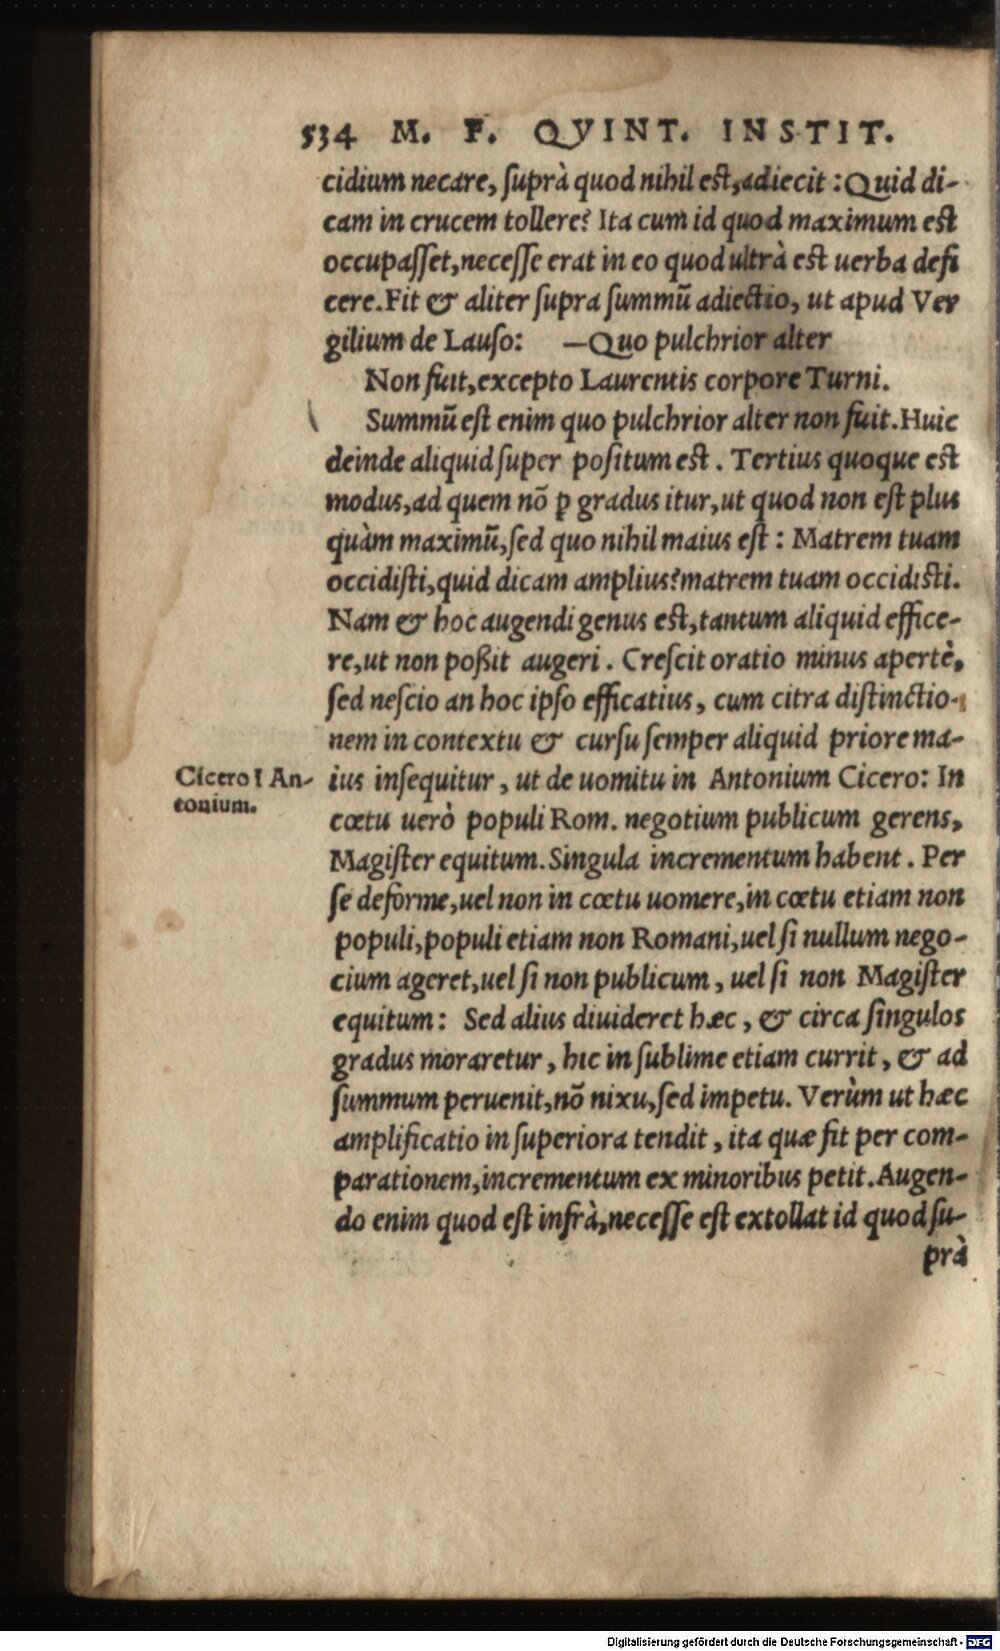 534 M. F. QVINT. INSTIT.
cidium necare, suprà quod nihil est, adiecit : Quid di-
cam in crucem tollere? Ita cum id quod maximum est
occupasset, necesse erat in eo quod ultrà est uerba defi
cere. Fit & aliter supra summū adiectio, ut apud Ver
gilium de Lauso: —Quo pulchrior alter
Non fuit, excepto Laurentis corpore Turni.
Summū est enim quo pulchrior alter non fuit. Huic
deinde aliquid super positum est. Tertius quoque est
modus, ad quem nō ꝑ gradus itur, ut quod non est plus
quàm maximū, sed quo nihil maius est : Matrem tuam
occidisti, quid dicam amplius? matrem tuam occidisti.
Nam & hoc augendi genus est, tantum aliquid effice-
re, ut non poßit augeri. Crescit oratio minus apertè,
sed nescio an hoc ipso efficatius, cum citra distinctio-
nem in contextu & cursu semper aliquid priore ma-
Cicero ī An-
tonium.
ius insequitur, ut de uomitu in Antonium Cicero: In
cœtu uerò populi Rom. negotium publicum gerens,
Magister equitum. Singula incrementum habent. Per
se deforme, uel non in cœtu uomere, in cœtu etiam non
populi, populi etiam non Romani, uel si nullum nego-
cium ageret, uel si non publicum, uel si non Magister
equitum: Sed alius diuideret hæc, & circa singulos
gradus moraretur, hic in sublime etiam currit, & ad
summum peruenit, nō nixu, sed impetu. Verùm ut hæc
amplificatio in superiora tendit, ita quæ fit per com-
parationem, incrementum ex minoribus petit. Augen-
do enim quod est infrà, necesse est extollat id quod su-
prà
Digitalisierung gefördert durch die Deutsche Forschungsgemeinschaft - DFG